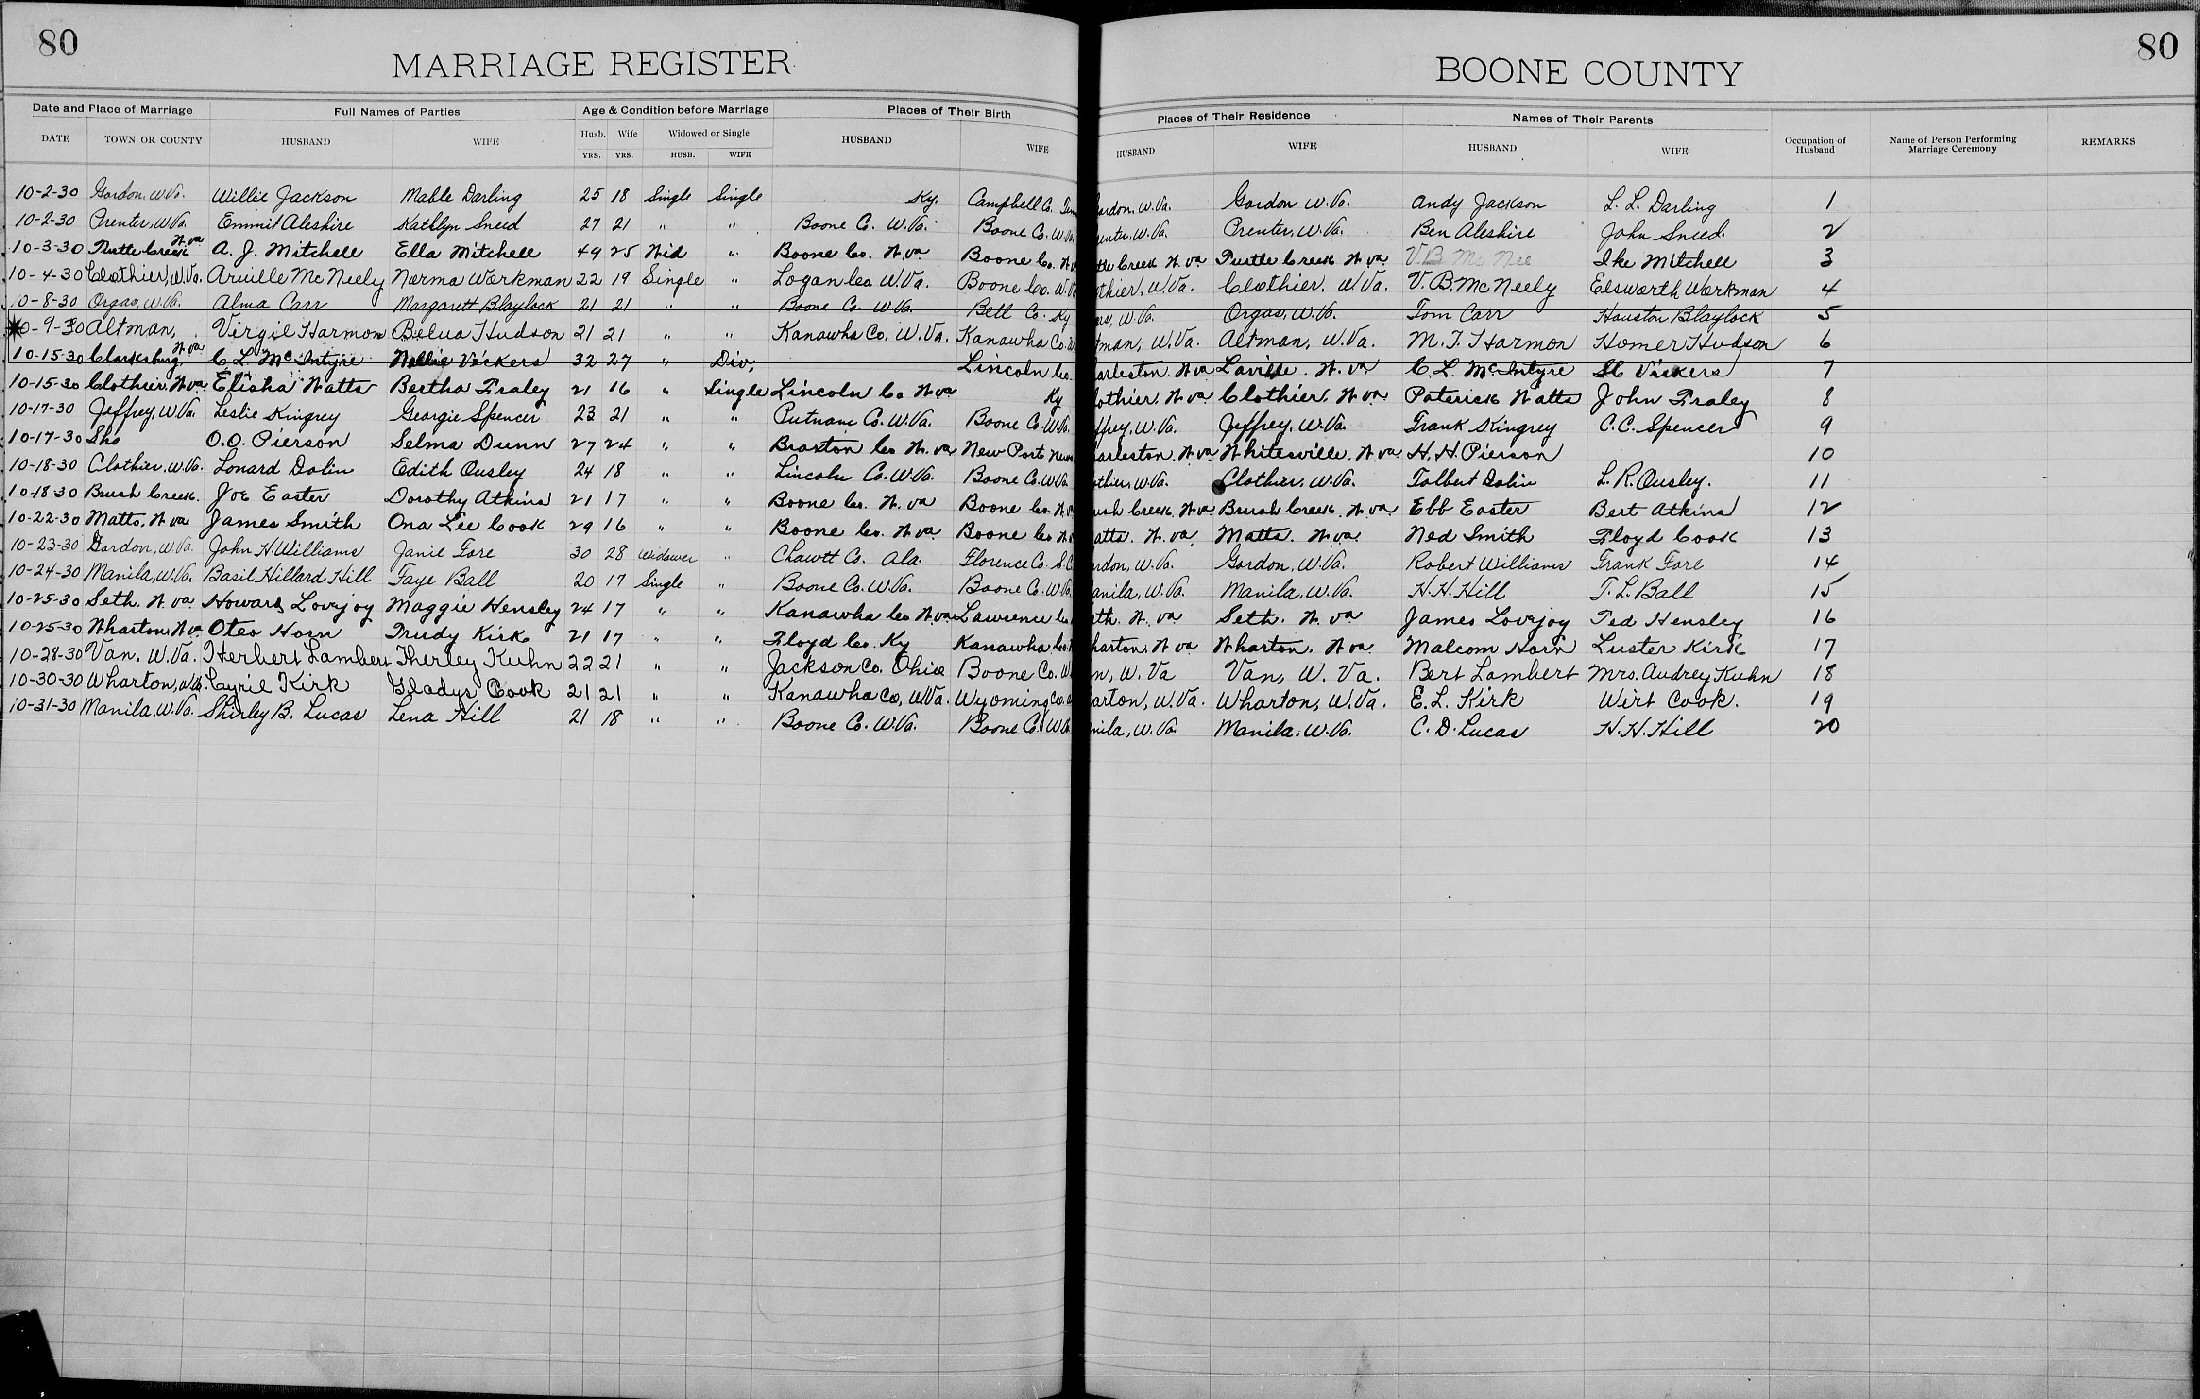 80
MARRIAGE REGISTER
BOONE COUNTY
80
Date and Place of Marriage Full Names of Parties Age & Condition before Marriage Places of Their Birth Places of Their Residence Names of Their Parents
DATE TOWN OR COUNTY HUSBAND WIFE Husb. Wife Widowed or Single HUSBAND WIFE HUSBAND WIFE HUSBAND WIFE Occupation of Husband Name of Person Performing Marriage Ceremony REMARKS
YRS. YRS. HUSB. WIFE
10-2-30 Gordon, W.Va. Willie Jackson Mable Darling 25 18 Single Single Ky. Campbell Co. Gordon W.Va. Andy Jackson L. L. Darling 1
10-2-30 Prenter, W.Va. Emmit Aleshire Kathlyn Sneed 27 21 " " Boone Co. W.Va. Boone Co. W.Va. Prenter, W.Va. Ben Aleshire John Sneed 2
10-3-30 Turtle Creek W. Va A. J. Mitchell Ella Mitchell 49 25 Wid " Boone Co. W. Va Boone Co. W. Va Turtle Creek W. Va V. B. Mc Nee Ike Mitchell 3
10-4-30 Clothier, W.Va. Arville McNeely Norma Workman 22 19 Single " Logan Co W.Va. Boone Co. W. Va Clothier, W.Va. V. B. McNeely Elsworth Workman 4
10-8-30 Orgas, W.Va. Alma Carr Margarett Blaylock 21 21 " " Boone Co. W.Va. Bell Co. Ky Orgas, W.Va. Tom Carr Houston Blaylock 5
10-9-30 Altman, Virgil Harmon Belva Hudson 21 21 " " Kanawha Co. W.Va. Kanawha Co. Altman, W.Va. M. T. Harmon Homer Hudson 6
10-15-30 Clarksburg W. Va C L McIntyre Nellie Vickers 32 27 " Div, Lincoln Co. W. Va C L. McIntyre Vickers 7
10-15-30 Clothier W. Va Elisha Watts Bertha Fraley 21 16 " Single Lincoln Co W. Va Ky Clothier, W. Va Patrick Watts John Fraley 8
10-17-30 Jeffrey, W.Va. Leslie Kingrey Georgie Spencer 23 21 " " Putnam Co. W.Va. Boone Co. W.Va. Jeffrey, W.Va. Frank Kingrey C. C. Spencer 9
10-17-30 Sho O. O. Pierson Selma Dunn 27 24 " " Braxton Co W. Va New Port News Whitesville, W. Va H. H. Pierson 10
10-18-30 Clothier, W.Va. Lonard Dolin Edith Ousley 24 18 " " Lincoln Co. W.Va. Boone Co. W.Va. Clothier, W.Va. Tolbert Dolin L. R. Ousley. 11
10-18-30 Brush Creek. Joe Easter Dorothy Atkins 21 17 " " Boone Co. W. Va Boone Co. W. Va Brush Creek, W. Va Ebb Easter Bert Atkins 12
10-22-30 Matts, W. Va James Smith Ona Lee Cook 29 16 " " Boone Co. W. Va Boone Co W. Va Matts. W. Va Ned Smith Floyd Cook 13
10-23-30 Gordon, W.Va. John H Williams Janie Fore 30 28 Widower " Chawtt Co. Ala. Florence Co. S.C. Gordon, W.Va. Robert Williams Frank Fore 14
10-24-30 Manila, W.Va. Basil Hillard Hill Faye Ball 20 17 Single " Boone Co. W.Va. Boone Co. W.Va. Manila, W.Va. H. H. Hill T. L. Ball 15
10-25-30 Seth, W. Va Howard Lovejoy Maggie Hensley 24 17 " " Kanawha Co W. Va Lawrence Co Seth. W. Va James Lovejoy Ted Hensley 16
10-25-30 Wharton, W. Va Oteo Horn Trudy Kirk 21 17 " " Floyd Co. Ky Kanawha Co Wharton, W. Va Malcom Horn Luster Kirk 17
10-28-30 Van, W.Va. Herbert Lambert Therley Kuhn 22 21 " " Jackson Co. Ohio Boone Co. Van, W. Va. Bert Lambert Mrs. Audrey Kuhn 18
10-30-30 Wharton, W.Va. Cyril Kirk Gladys Cook 21 21 " " Kanawha Co, W.Va. Wyoming Co. Wharton, W.Va. E. L. Kirk Wirt Cook. 19
10-31-30 Manila W.Va. Shirley B. Lucas Lena Hill 21 18 " " Boone Co. W.Va. Boone Co. W.Va. Manila, W.Va. C. D. Lucas H. H. Hill 20